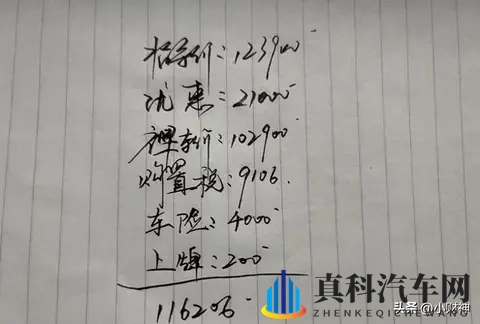 指导价:123900
优惠:21000
裸车价:102900
购置税:9106.
车险:4000
上牌:200
116206
真科汽车网
ZHENKEQICHEWANG
头条@小财神